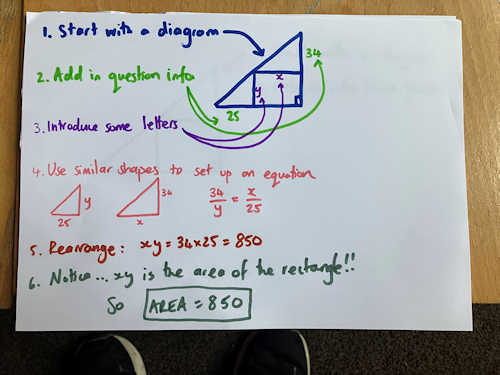 1. Start with a diagram
34
2. Add in question info
x
y
25
3. Introduce some letters
4. Use similar shapes to set up an equation
y
25
34
x
34/y = x/25
5. Rearrange: xy = 34x25 = 850
6. Notice... xy is the area of the rectangle!!
So AREA = 850